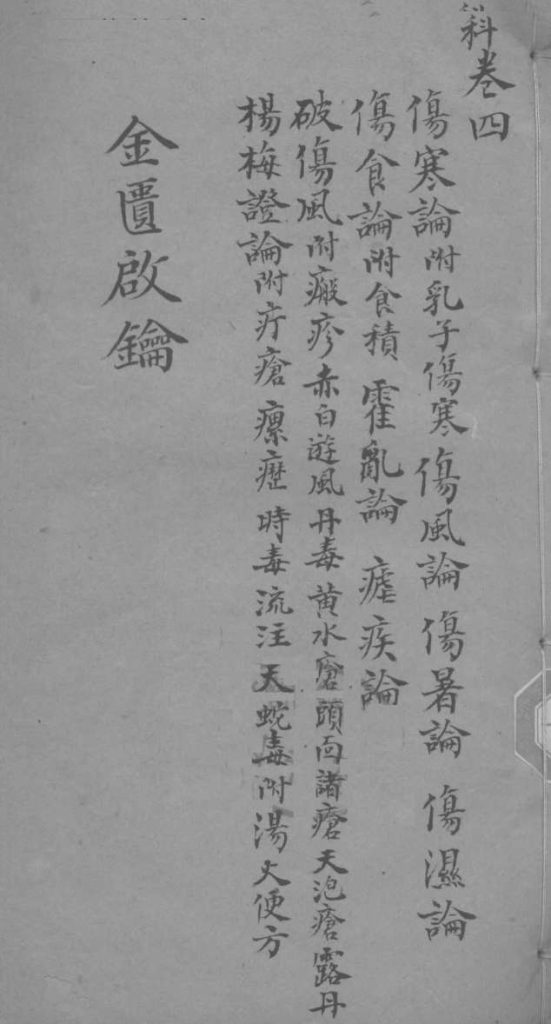 科卷四
傷寒論附乳子傷寒 傷風論 傷暑論 傷濕論
傷食論附食積 霍亂論 瘧疾論
破傷風附癜疹赤白遊風丹毒黄水瘡頭面諸瘡天泡瘡露丹
楊梅證論附疔瘡瘰癧時毒流注天蛇毒附湯火便方
金匱啟鑰